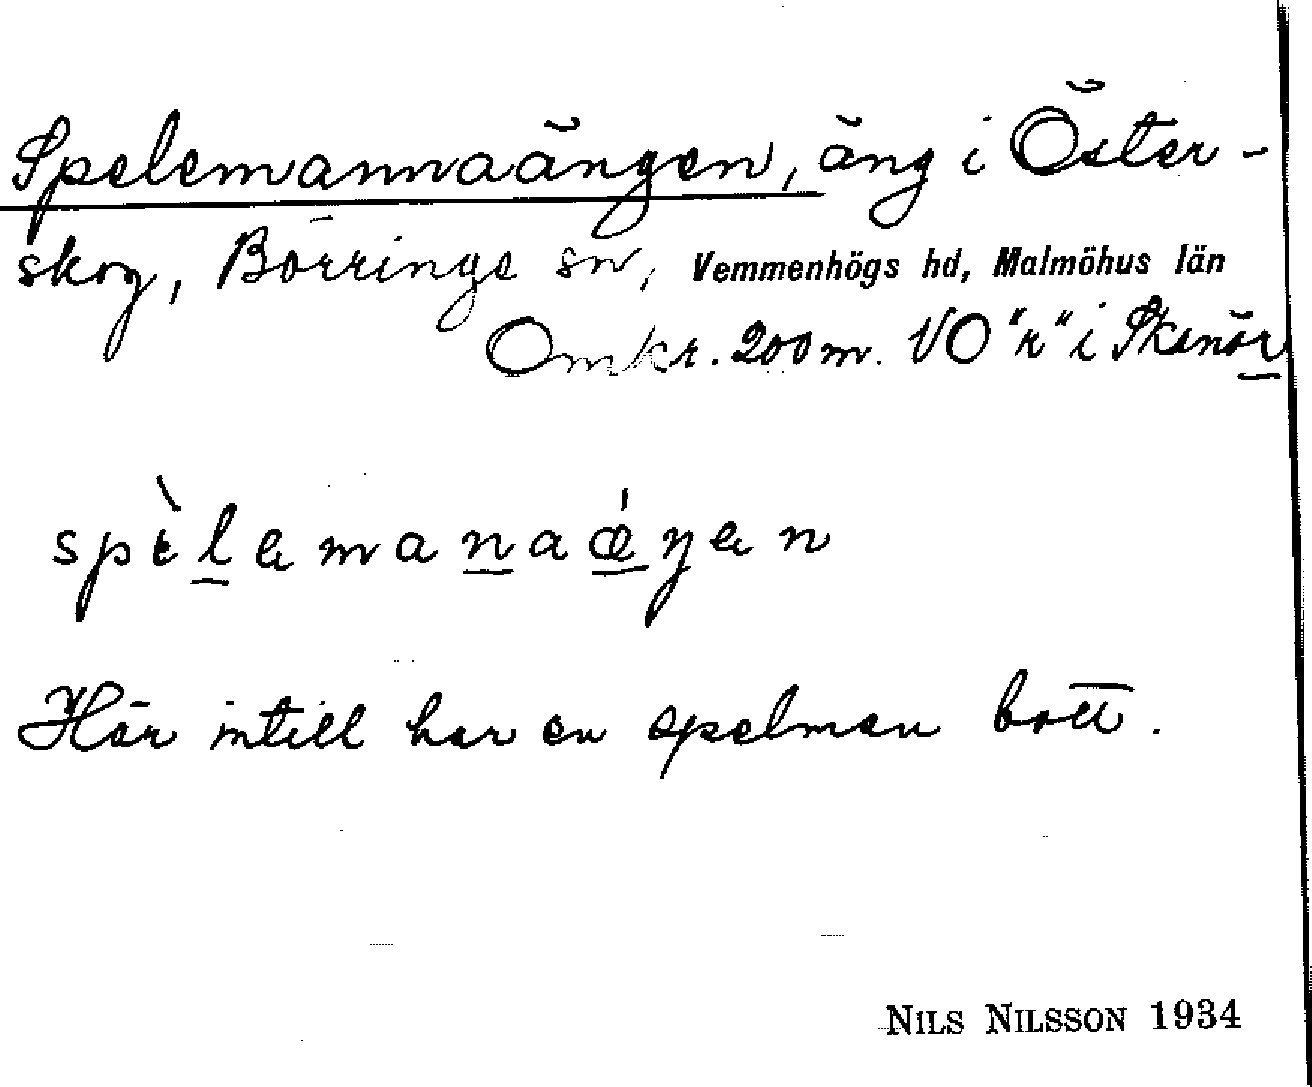 Spelemannaängen, äng i Öster-
skog, Börringe sn, Vemmenhögs hd, Malmöhus län
Omkr. 200 m. VO "r" i Skenör
Här intill har en spelman bott.
NILS NILSSON 1934